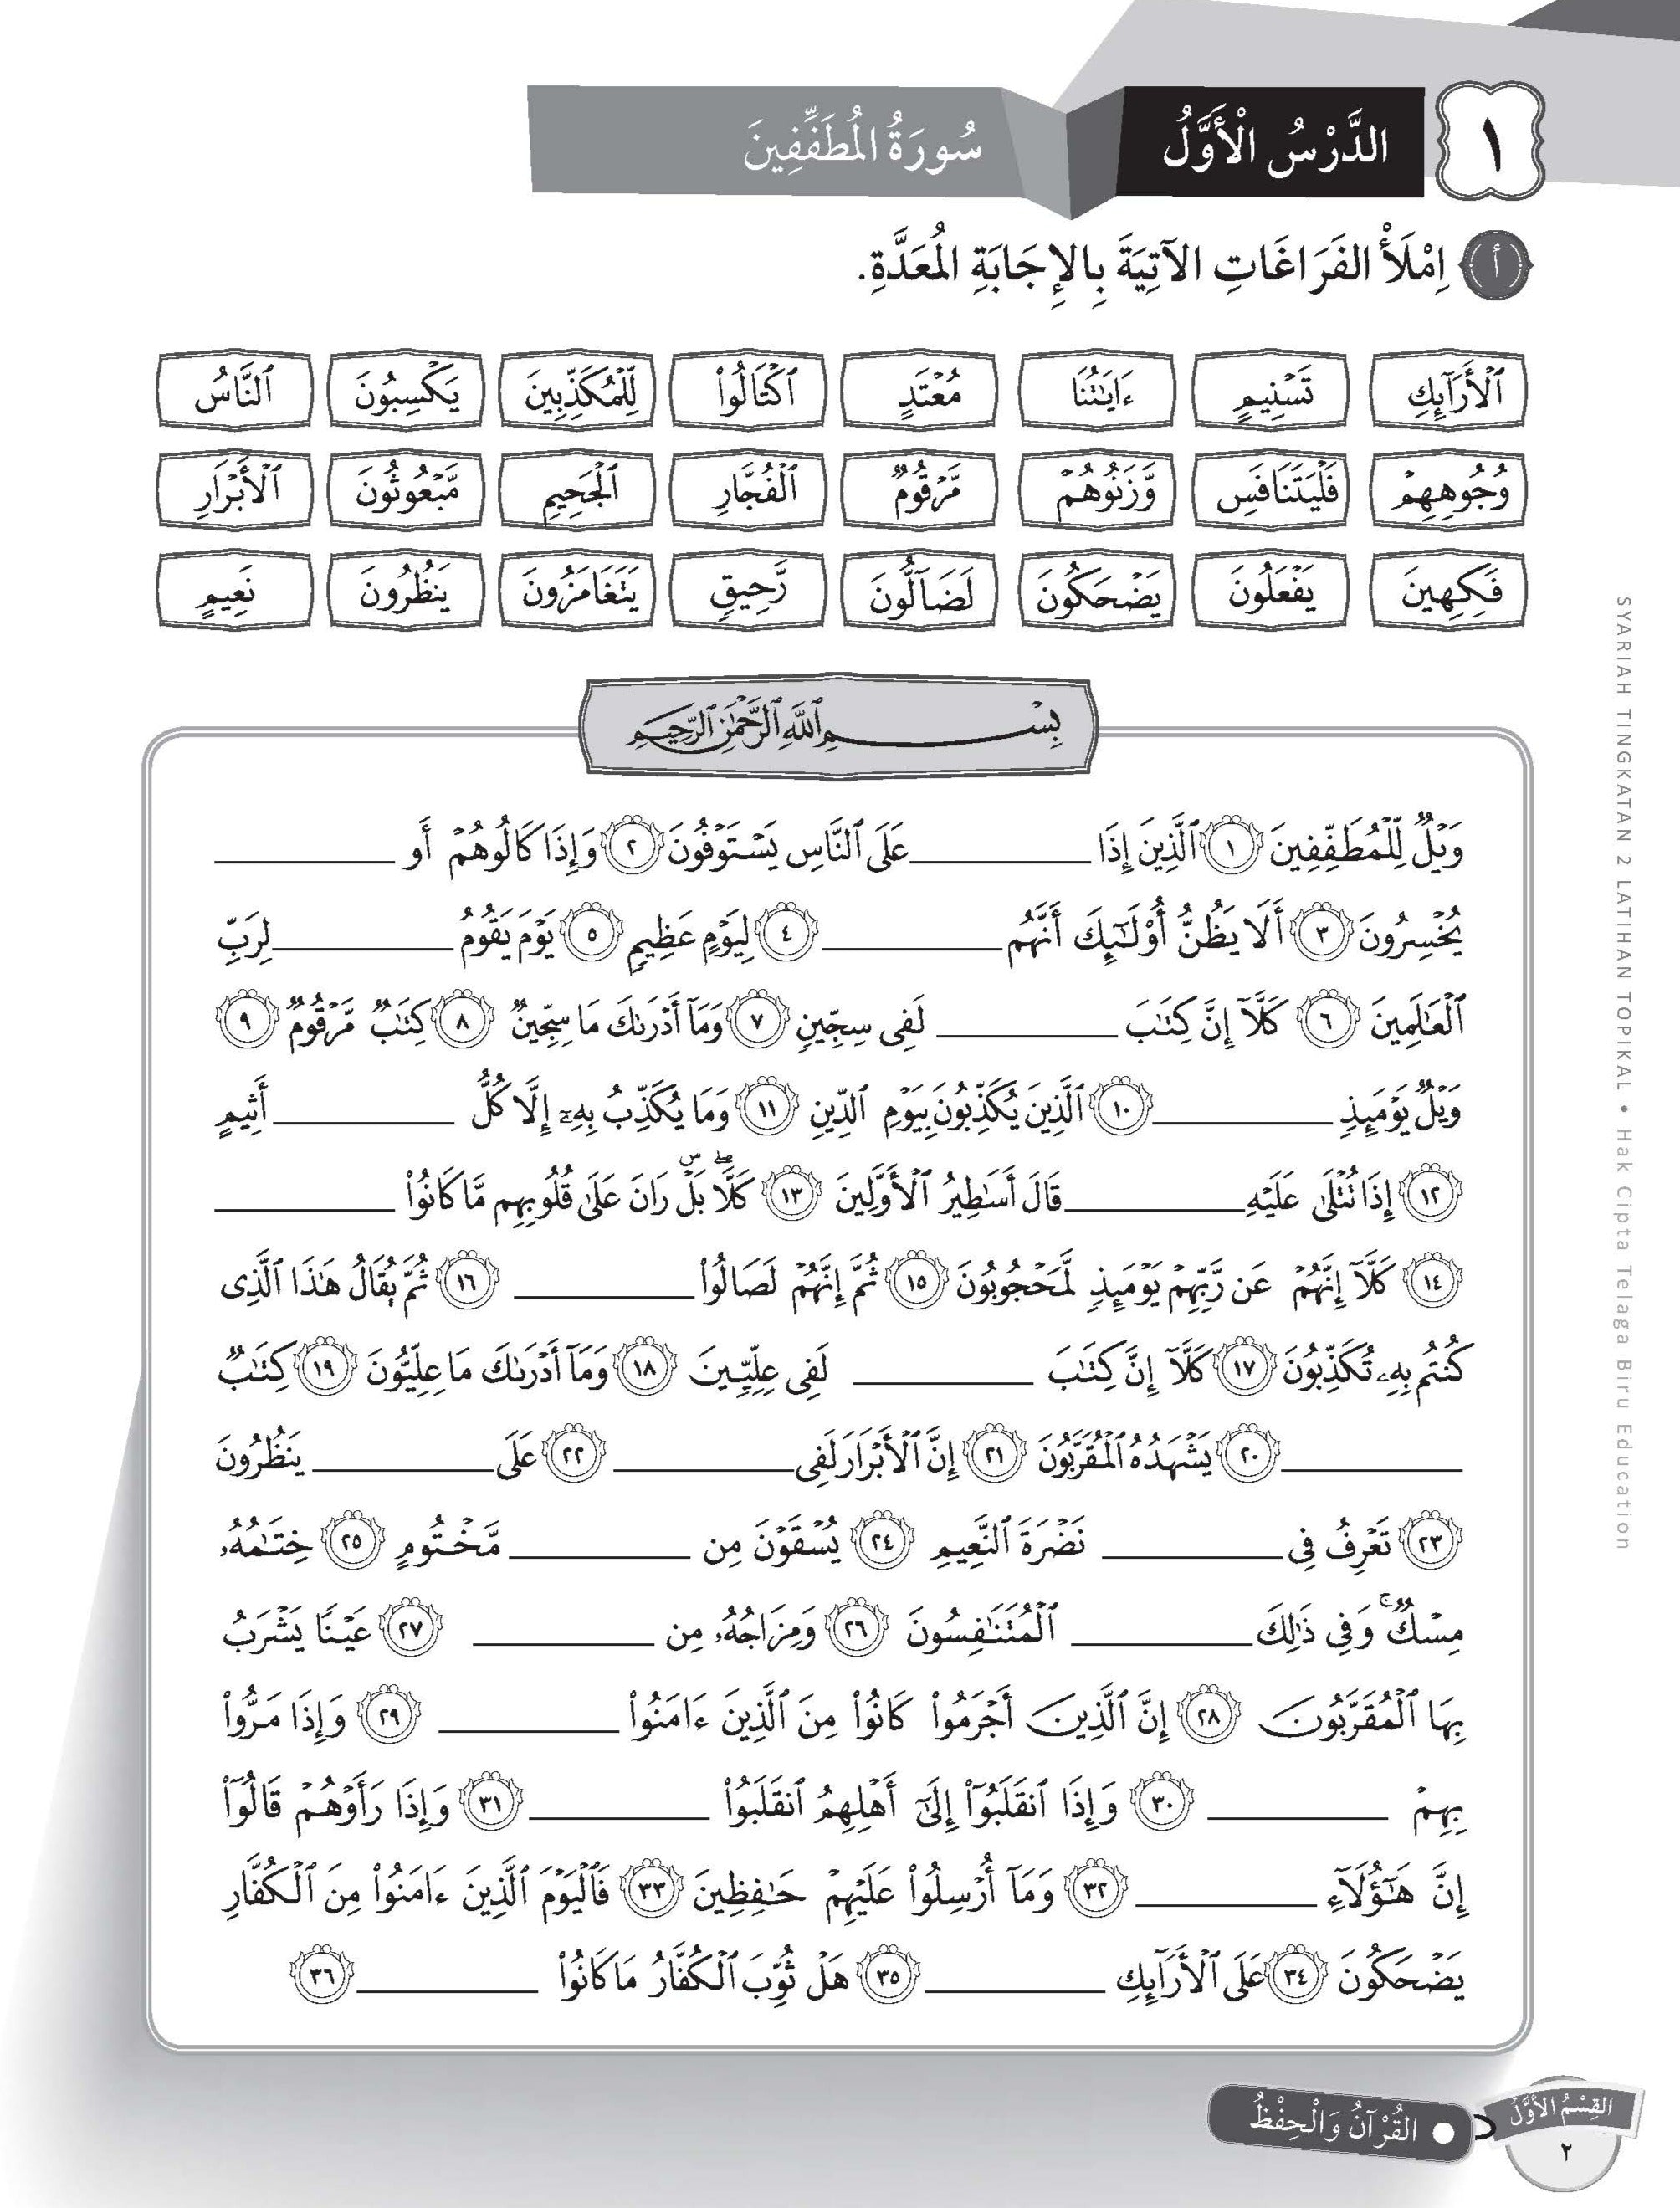 ١ الدَّرْسُ الْأَوَّلُ سُورَةُ المُطَفِّفِينَ
(أ) اِمْلَأْ الفَرَاغَاتِ الآتِيَةَ بِالإِجَابَةِ المُعَدَّةِ.
ٱلْأَرَآئِكِ تَسْنِيمٍ ءَايَـٰتُنَا مُعْتَدٍ ٱكْتَالُوا۟ لِّلْمُكَذِّبِينَ يَكْسِبُونَ ٱلنَّاسُ
وُجُوهِهِمْ فَلْيَتَنَافَسِ وَّزَنُوهُمْ مَّرْقُومٌ ٱلْفُجَّارِ ٱلْجَحِيمِ مَّبْعُوثُونَ ٱلْأَبْرَارِ
فَكِهِينَ يَفْعَلُونَ يَضْحَكُونَ لَضَآلُّونَ رَّحِيقٍ يَتَغَامَزُونَ يَنظُرُونَ نَعِيمٍ
بِسْمِ ٱللَّهِ ٱلرَّحْمَـٰنِ ٱلرَّحِيمِ
وَيْلٌ لِّلْمُطَفِّفِينَ ١ ٱلَّذِينَ إِذَا ________ عَلَى ٱلنَّاسِ يَسْتَوْفُونَ ٢ وَإِذَا كَالُوهُمْ أَو ________
يُخْسِرُونَ ٣ أَلَا يَظُنُّ أُو۟لَـٰٓئِكَ أَنَّهُم ________ ٤ لِيَوْمٍ عَظِيمٍ ٥ يَوْمَ يَقُومُ ________ لِرَبِّ
ٱلْعَـٰلَمِينَ ٦ كَلَّآ إِنَّ كِتَـٰبَ ________ لَفِى سِجِّينٍ ٧ وَمَآ أَدْرَىٰكَ مَا سِجِّينٌ ٨ كِتَـٰبٌ مَّرْقُومٌ ٩
وَيْلٌ يَوْمَئِذٍ ________ ١٠ ٱلَّذِينَ يُكَذِّبُونَ بِيَوْمِ ٱلدِّينِ ١١ وَمَا يُكَذِّبُ بِهِۦٓ إِلَّا كُلُّ ________ أَثِيمٍ
١٢ إِذَا تُتْلَىٰ عَلَيْهِ ________ قَالَ أَسَـٰطِيرُ ٱلْأَوَّلِينَ ١٣ كَلَّا ۖ بَلْ ۜ رَانَ عَلَىٰ قُلُوبِهِم مَّا كَانُوا۟ ________
١٤ كَلَّآ إِنَّهُمْ عَن رَّبِّهِمْ يَوْمَئِذٍ لَّمَحْجُوبُونَ ١٥ ثُمَّ إِنَّهُمْ لَصَالُوا۟ ________ ١٦ ثُمَّ يُقَالُ هَـٰذَا ٱلَّذِى
كُنتُم بِهِۦ تُكَذِّبُونَ ١٧ كَلَّآ إِنَّ كِتَـٰبَ ________ لَفِى عِلِّيِّينَ ١٨ وَمَآ أَدْرَىٰكَ مَا عِلِّيُّونَ ١٩ كِتَـٰبٌ
________ ٢٠ يَشْهَدُهُ ٱلْمُقَرَّبُونَ ٢١ إِنَّ ٱلْأَبْرَارَ لَفِى ________ ٢٢ عَلَى ________ يَنظُرُونَ
٢٣ تَعْرِفُ فِى ________ نَضْرَةَ ٱلنَّعِيمِ ٢٤ يُسْقَوْنَ مِن ________ مَّخْتُومٍ ٢٥ خِتَـٰمُهُۥ
مِسْكٌ ۚ وَفِى ذَٰلِكَ ________ ٱلْمُتَنَـٰفِسُونَ ٢٦ وَمِزَاجُهُۥ مِن ________ ٢٧ عَيْنًا يَشْرَبُ
بِهَا ٱلْمُقَرَّبُونَ ٢٨ إِنَّ ٱلَّذِينَ أَجْرَمُوا۟ كَانُوا۟ مِنَ ٱلَّذِينَ ءَامَنُوا۟ ________ ٢٩ وَإِذَا مَرُّوا۟
بِهِمْ ________ ٣٠ وَإِذَا ٱنقَلَبُوٓا۟ إِلَىٰٓ أَهْلِهِمُ ٱنقَلَبُوا۟ ________ ٣١ وَإِذَا رَأَوْهُمْ قَالُوٓا۟
إِنَّ هَـٰٓؤُلَآءِ ________ ٣٢ وَمَآ أُرْسِلُوا۟ عَلَيْهِمْ حَـٰفِظِينَ ٣٣ فَٱلْيَوْمَ ٱلَّذِينَ ءَامَنُوا۟ مِنَ ٱلْكُفَّارِ
يَضْحَكُونَ ٣٤ عَلَى ٱلْأَرَآئِكِ ________ ٣٥ هَلْ ثُوِّبَ ٱلْكُفَّارُ مَا كَانُوا۟ ________ ٣٦
SYARIAH TINGKATAN 2 LATIHAN TOPIKAL • Hak Cipta Telaga Biru Education
القِسْمُ الأَوَّلُ • القُرْآنُ وَالْحِفْظُ
٢